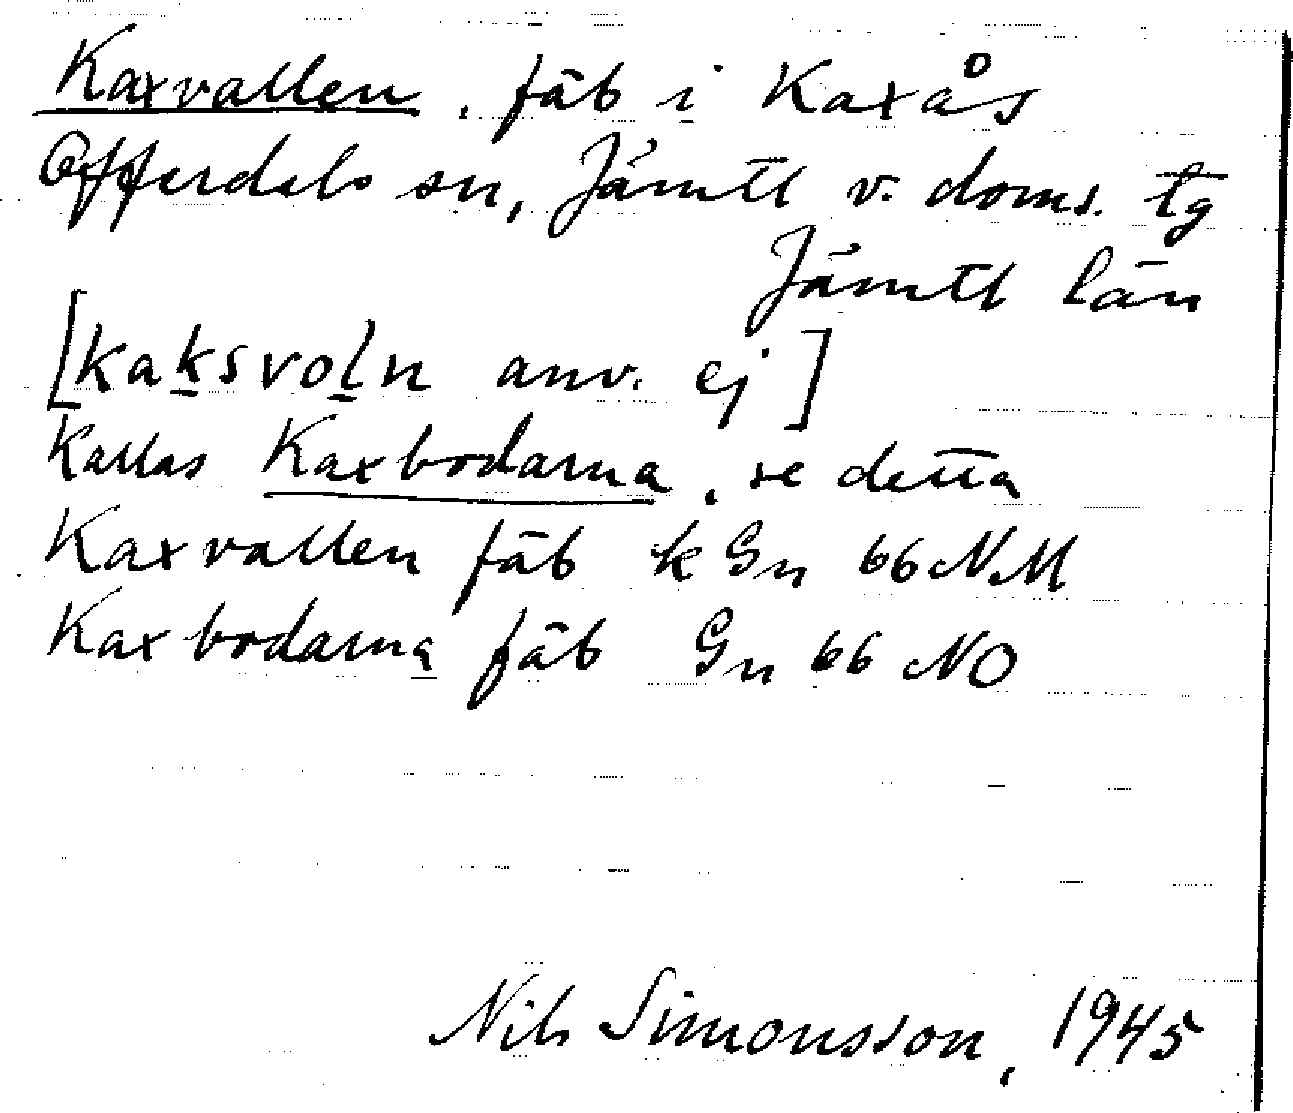 Kaxvallen, fäb i Kaxås
Offerdals sn, Jämtl v. doms. tg
Jämtl län
[kaksvoln anv. ej]
kallas Kaxbodarna, se detta
Kaxvallen fäb k Gn 66 NM
Kaxbodarna fäb Gn 66 NO
Nils Simonsson, 1945